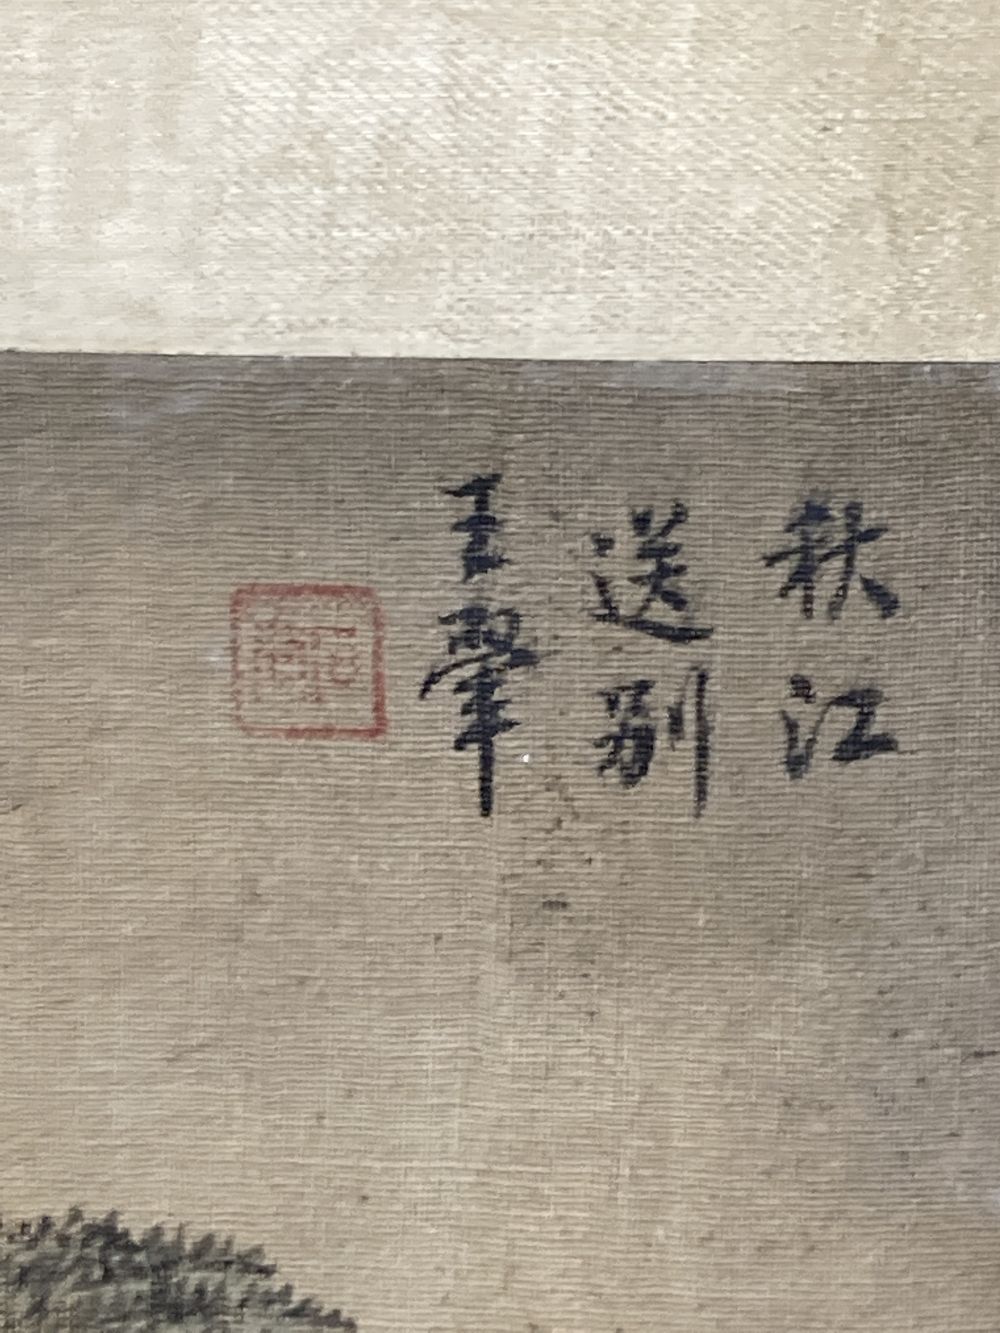 秋江
送别
王翬